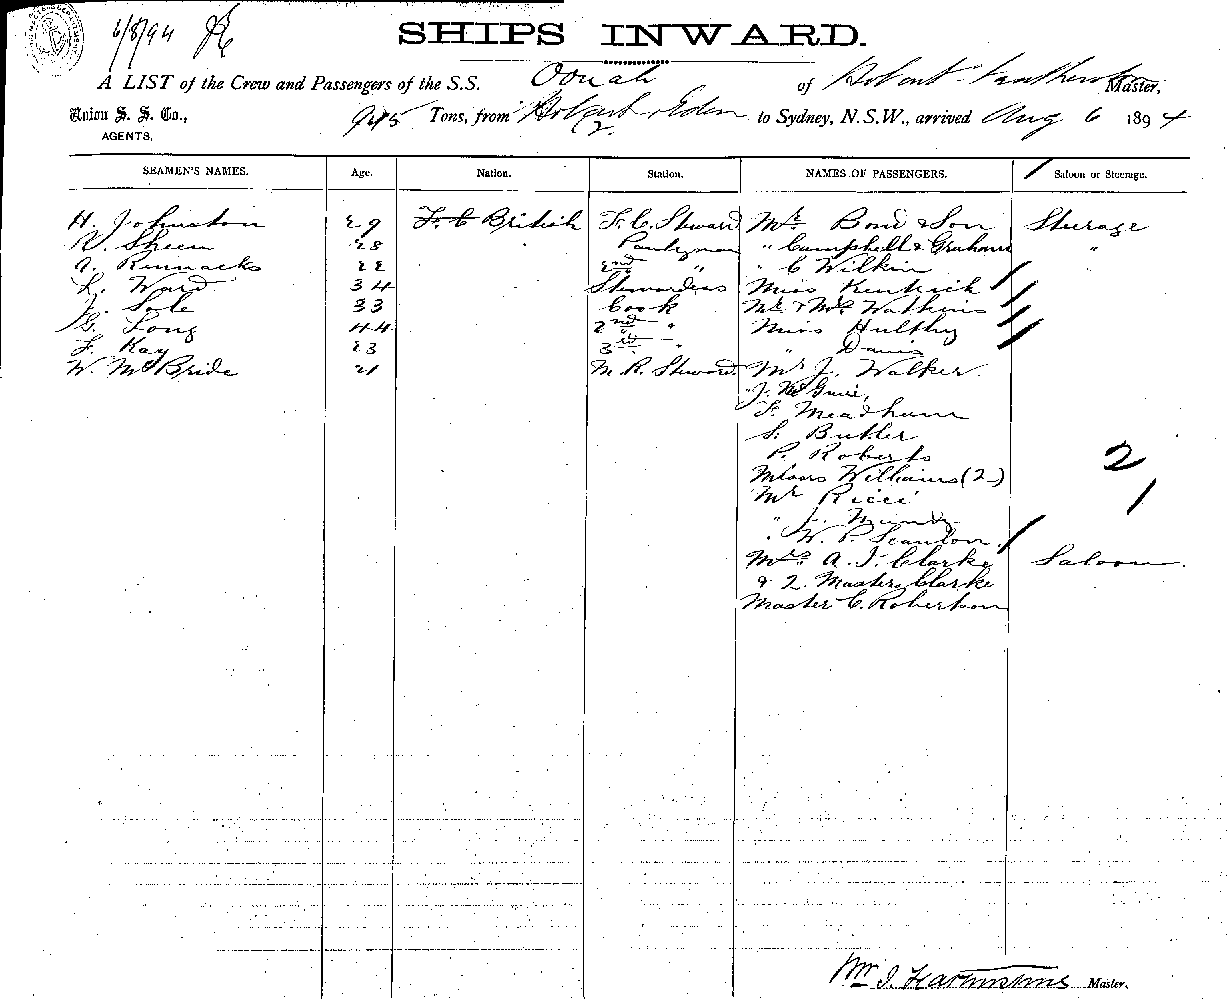 6/8/94
SHIPS INWARD.
A LIST of the Crew and Passengers of the S.S. Oonah of Master,
Union S. S. Co., Tons, from Hobart & Eden to Sydney, N.S.W., arrived Aug 6 1894
AGENTS.
SEAMEN'S NAMES. Age. Nation. Station. NAMES OF PASSENGERS. Saloon or Steerage.
H. Johnston 29 F. C British F. C. Steward Mr Bond & Son Steerage
Sheen 28 Pantryman " Campbell & Graham "
22 2nd " " C Wilkin
L. Ward 34 Stewardess Miss Kentick
J. Sole 33 Cook Mr & Mrs Watkins
G. Long 44 2nd " Miss
F. Kay 23 3rd " " Davis
W. McBride 21 M. R. Steward Mr J. Walker
" J. McGuire,
F. Meadham
S. Butler
P. Roberts 2
Misses Williams (2)
Mr Ricci 1
" J.
" W. P. Scanlon
Mrs A. I. Clarke Saloon.
& 2. Masters Clarke
Master C. Robertson
Master.